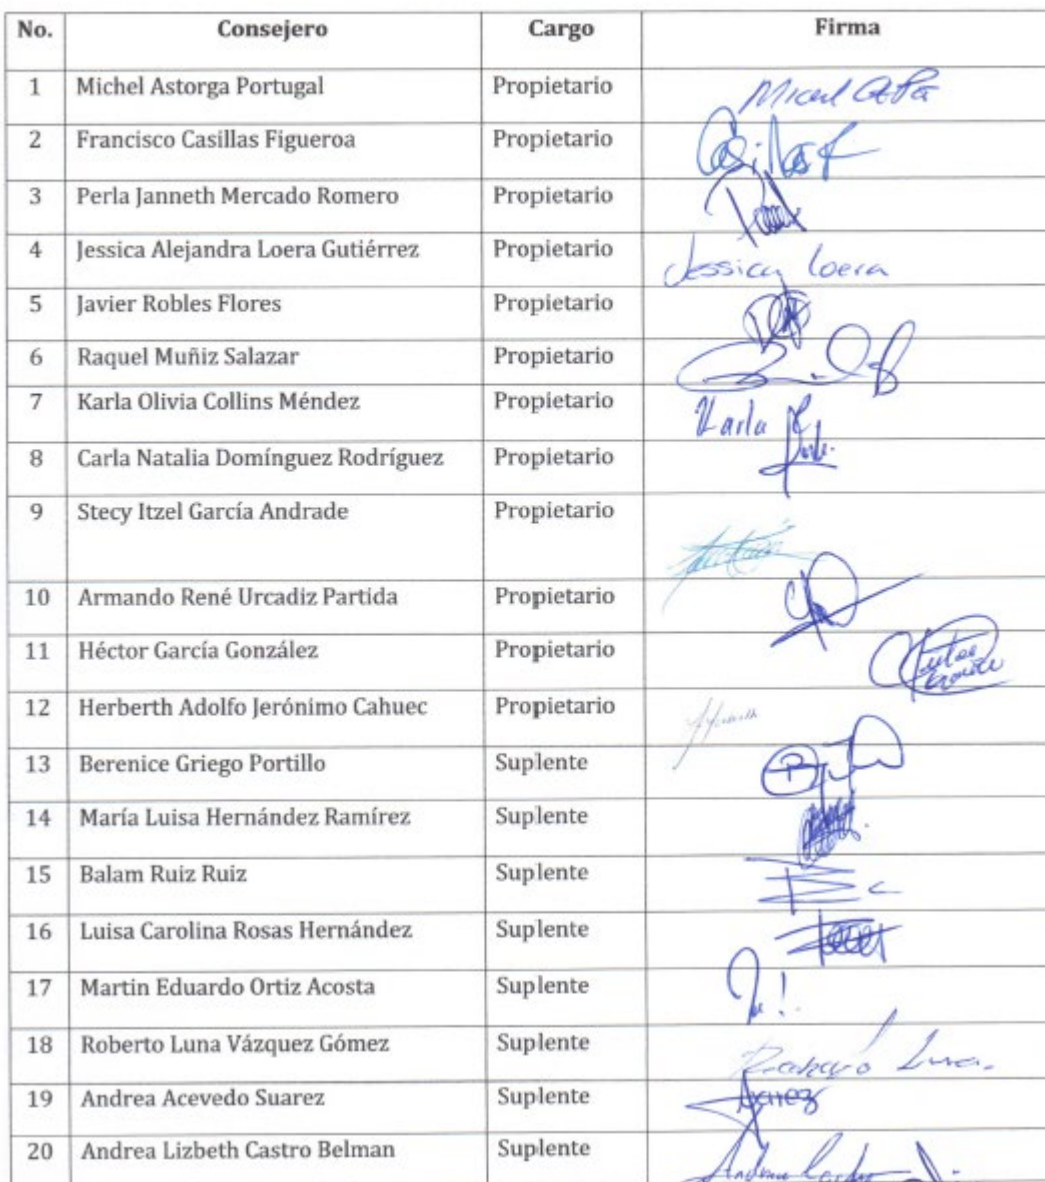 No. Consejero Cargo Firma
1 Michel Astorga Portugal Propietario
2 Francisco Casillas Figueroa Propietario Casillas F
3 Perla Janneth Mercado Romero Propietario
4 Jessica Alejandra Loera Gutiérrez Propietario Jessica Loera
5 Javier Robles Flores Propietario
6 Raquel Muñiz Salazar Propietario
7 Karla Olivia Collins Méndez Propietario Karla
8 Carla Natalia Domínguez Rodríguez Propietario
9 Stecy Itzel García Andrade Propietario
10 Armando René Urcadiz Partida Propietario
11 Héctor García González Propietario
12 Herberth Adolfo Jerónimo Cahuec Propietario
13 Berenice Griego Portillo Suplente
14 María Luisa Hernández Ramírez Suplente
15 Balam Ruiz Ruiz Suplente
16 Luisa Carolina Rosas Hernández Suplente
17 Martin Eduardo Ortiz Acosta Suplente
18 Roberto Luna Vázquez Gómez Suplente
19 Andrea Acevedo Suarez Suplente
20 Andrea Lizbeth Castro Belman Suplente